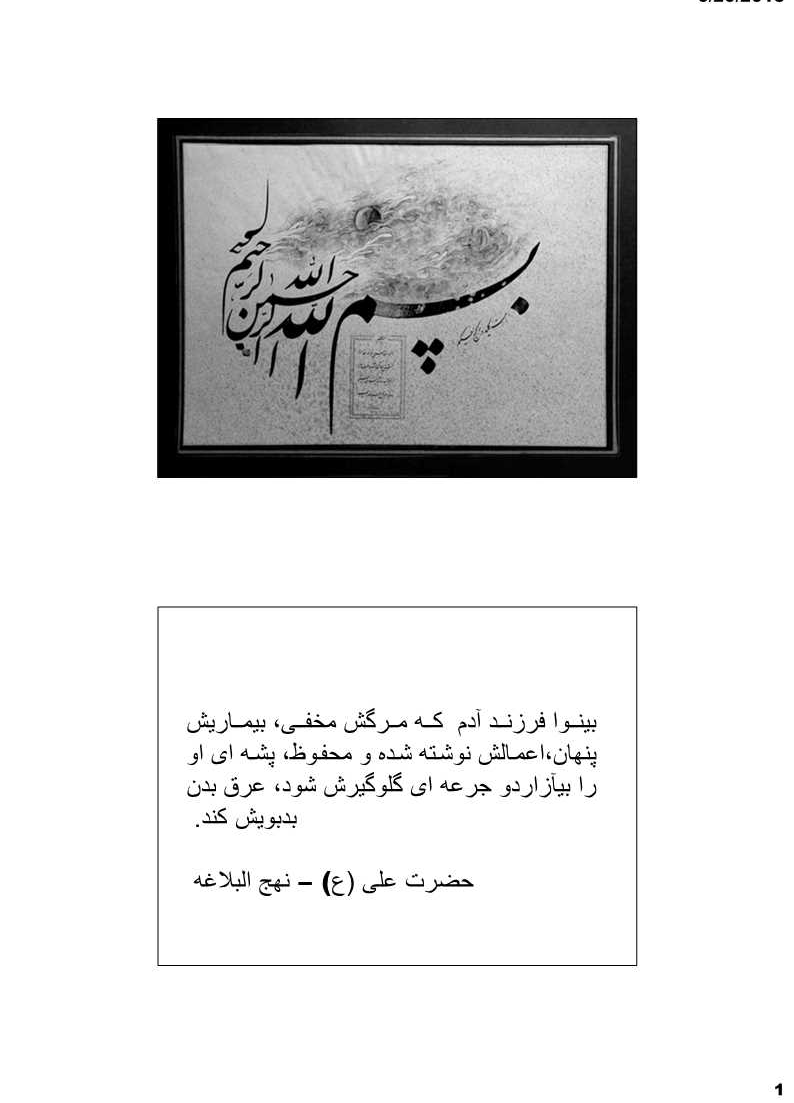 بسم الله الرحمن الرحیم
بینوا فرزند آدم که مرگش مخفی، بیماریش
پنهان،اعمالش نوشته شده و محفوظ، پشه ای او
را بیآزاردو جرعه ای گلوگیرش شود، عرق بدن
بدبویش کند.
حضرت علی (ع) – نهج البلاغه
1